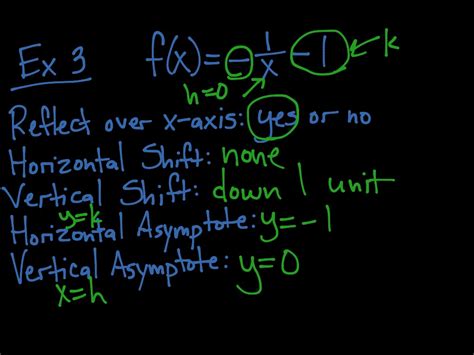 Ex 3 f(x) = - 1/x - 1 ← k
h=0
Reflect over x-axis: yes or no
Horizontal Shift: none
Vertical Shift: down 1 unit
y=k
Horizontal Asymptote: y=-1
Vertical Asymptote: y=0
x=h